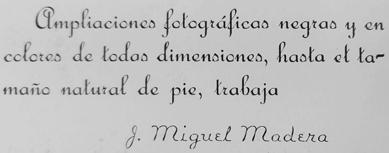 Ampliaciones fotográficas negras y en
colores de todas dimensiones, hasta el ta-
maño natural de pie, trabaja
J. Miguel Madera